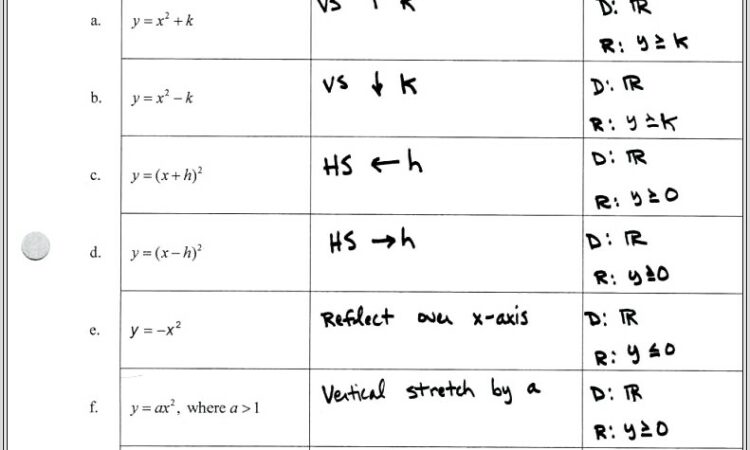 a. y = x² + k VS ↑ K D: ℝ
R: y ≥ K
b. y = x² – k VS ↓ K D: ℝ
R: y ≥ K
c. y = (x + h)² HS ← h D: ℝ
R: y ≥ 0
d. y = (x – h)² HS → h D: ℝ
R: y ≥ 0
e. y = –x² Reflect over x-axis D: ℝ
R: y ≤ 0
f. y = ax², where a > 1 Vertical stretch by a D: ℝ
R: y ≥ 0